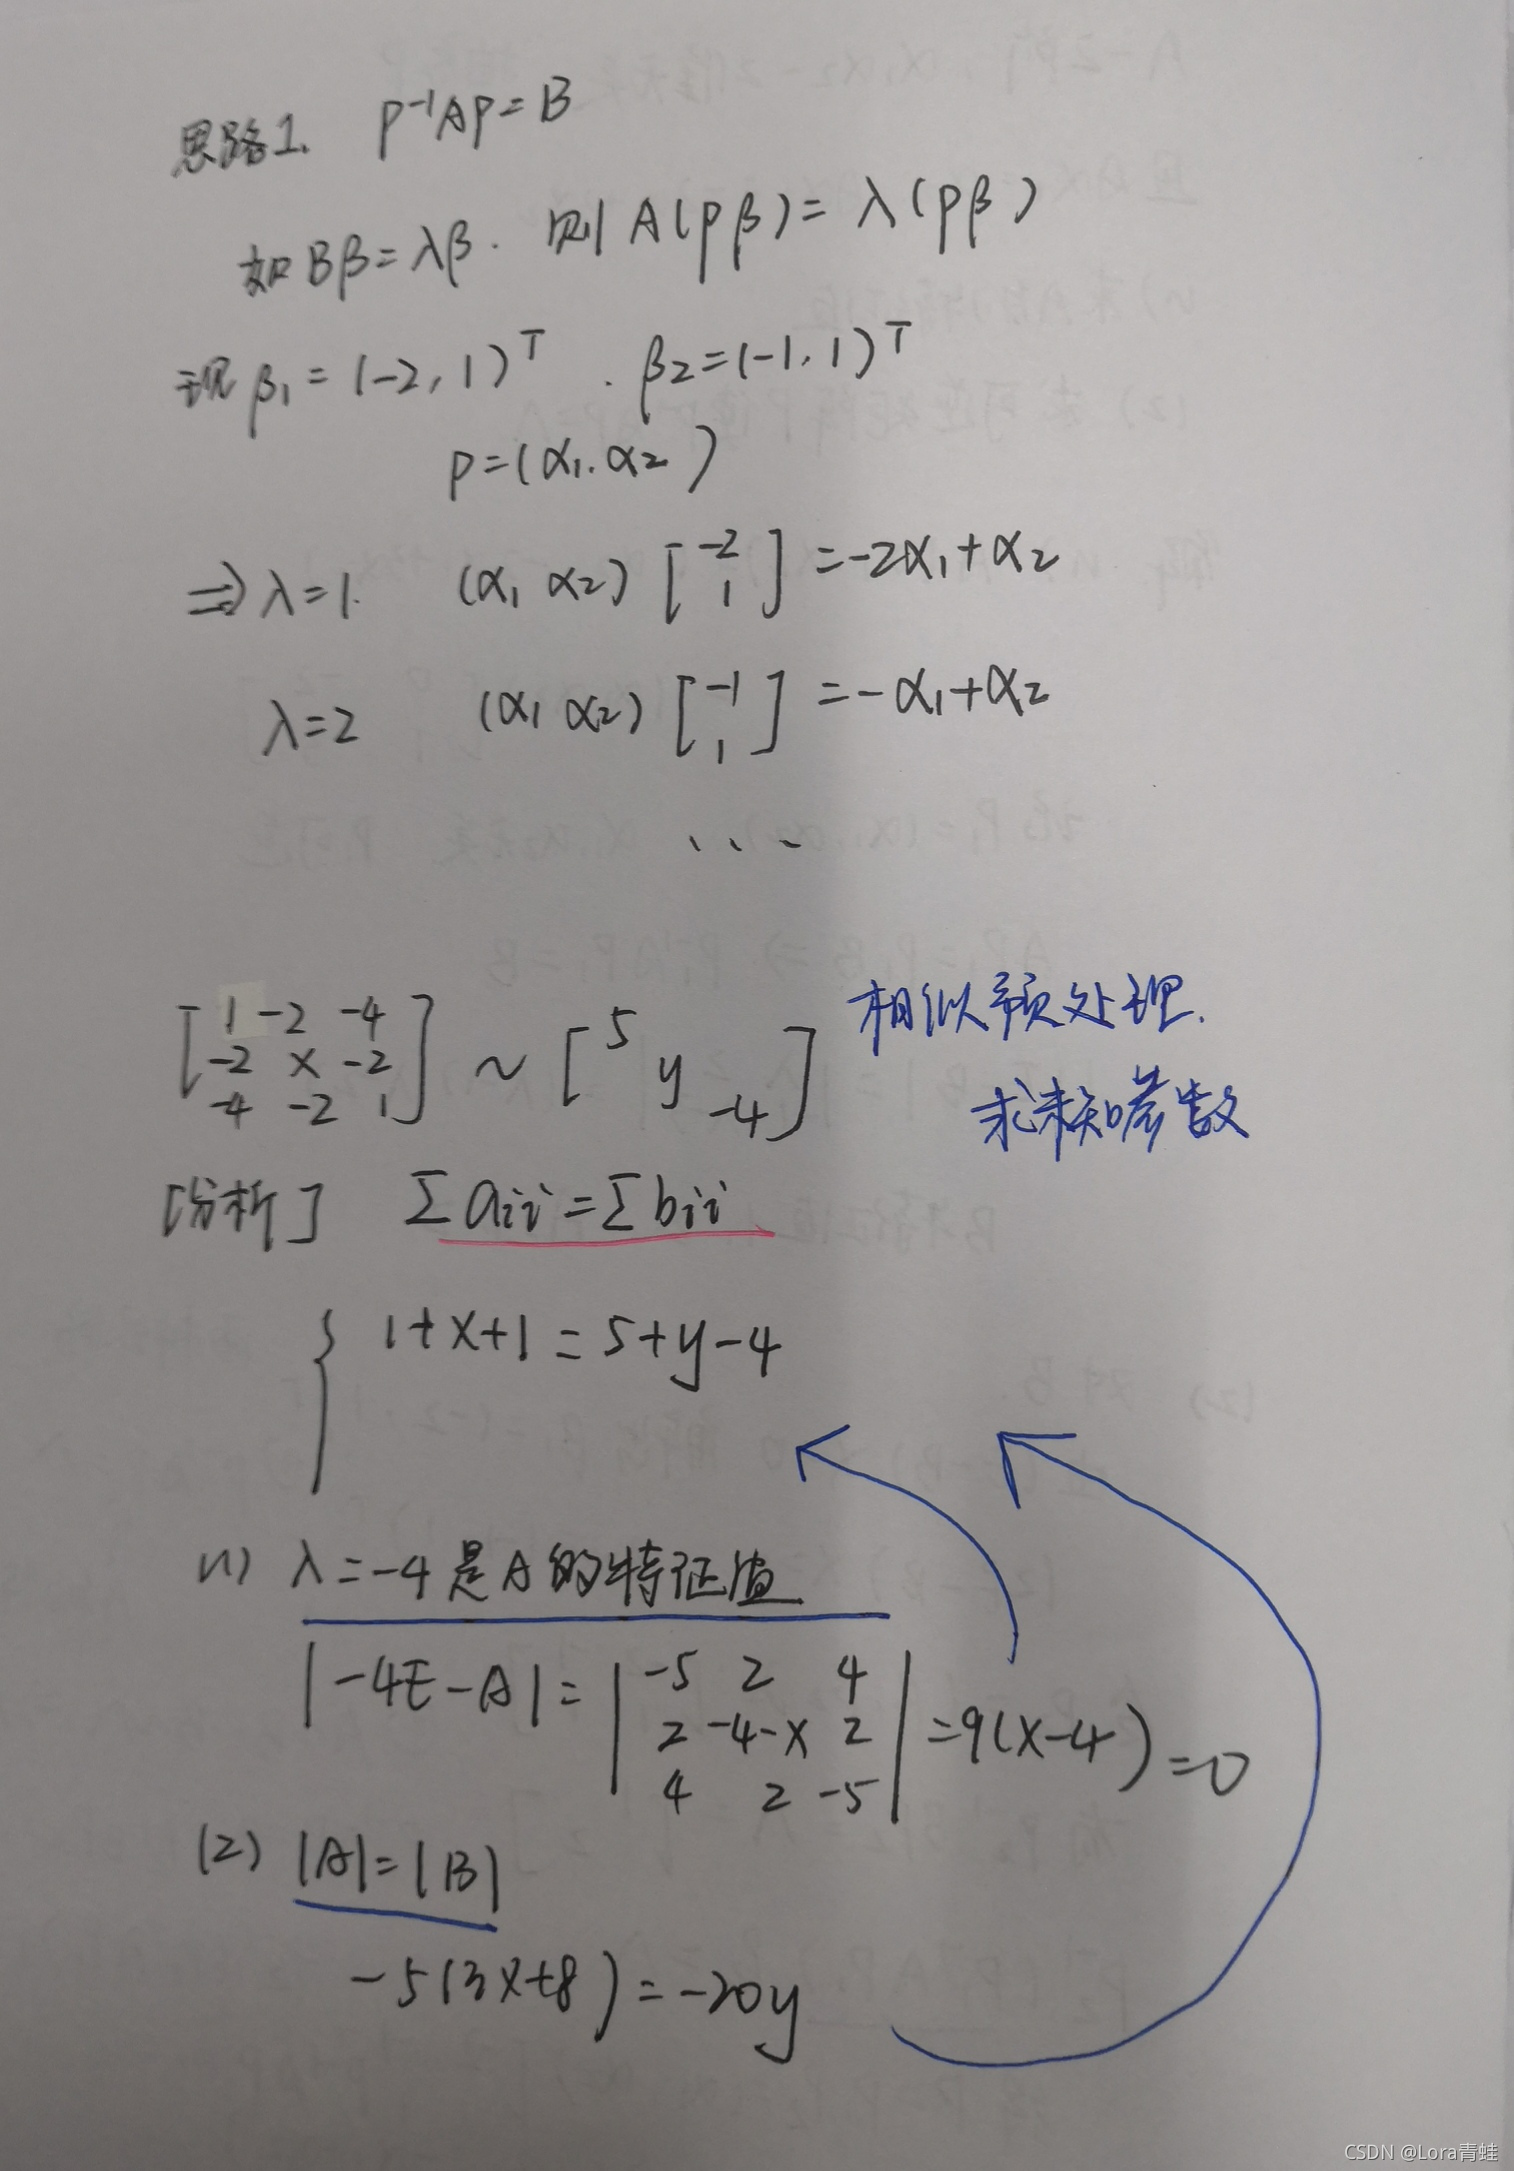 思路1. P⁻¹AP=B
如Bβ=λβ. 则A(Pβ)=λ(Pβ)
现β₁=(-2,1)ᵀ. β₂=(-1,1)ᵀ
P=(α₁.α₂)
⇒λ=1. (α₁ α₂)[-2 1]=-2α₁+α₂
λ=2 (α₁ α₂)[-1 1]=-α₁+α₂
...
[1 -2 -4
-2 x -2
-4 -2 1] ~ [5 y -4]
相似预处理.
求未知参数
[分析] Σaii=Σbii
{ 1+x+1=5+y-4
(1) λ=-4是A的特征值
|-4E-A|=|-5 2 4
2 -4-x 2
4 2 -5|=9(x-4)=0
(2) |A|=|B|
-5(3x+8)=-20y
CSDN @Lora青蛙